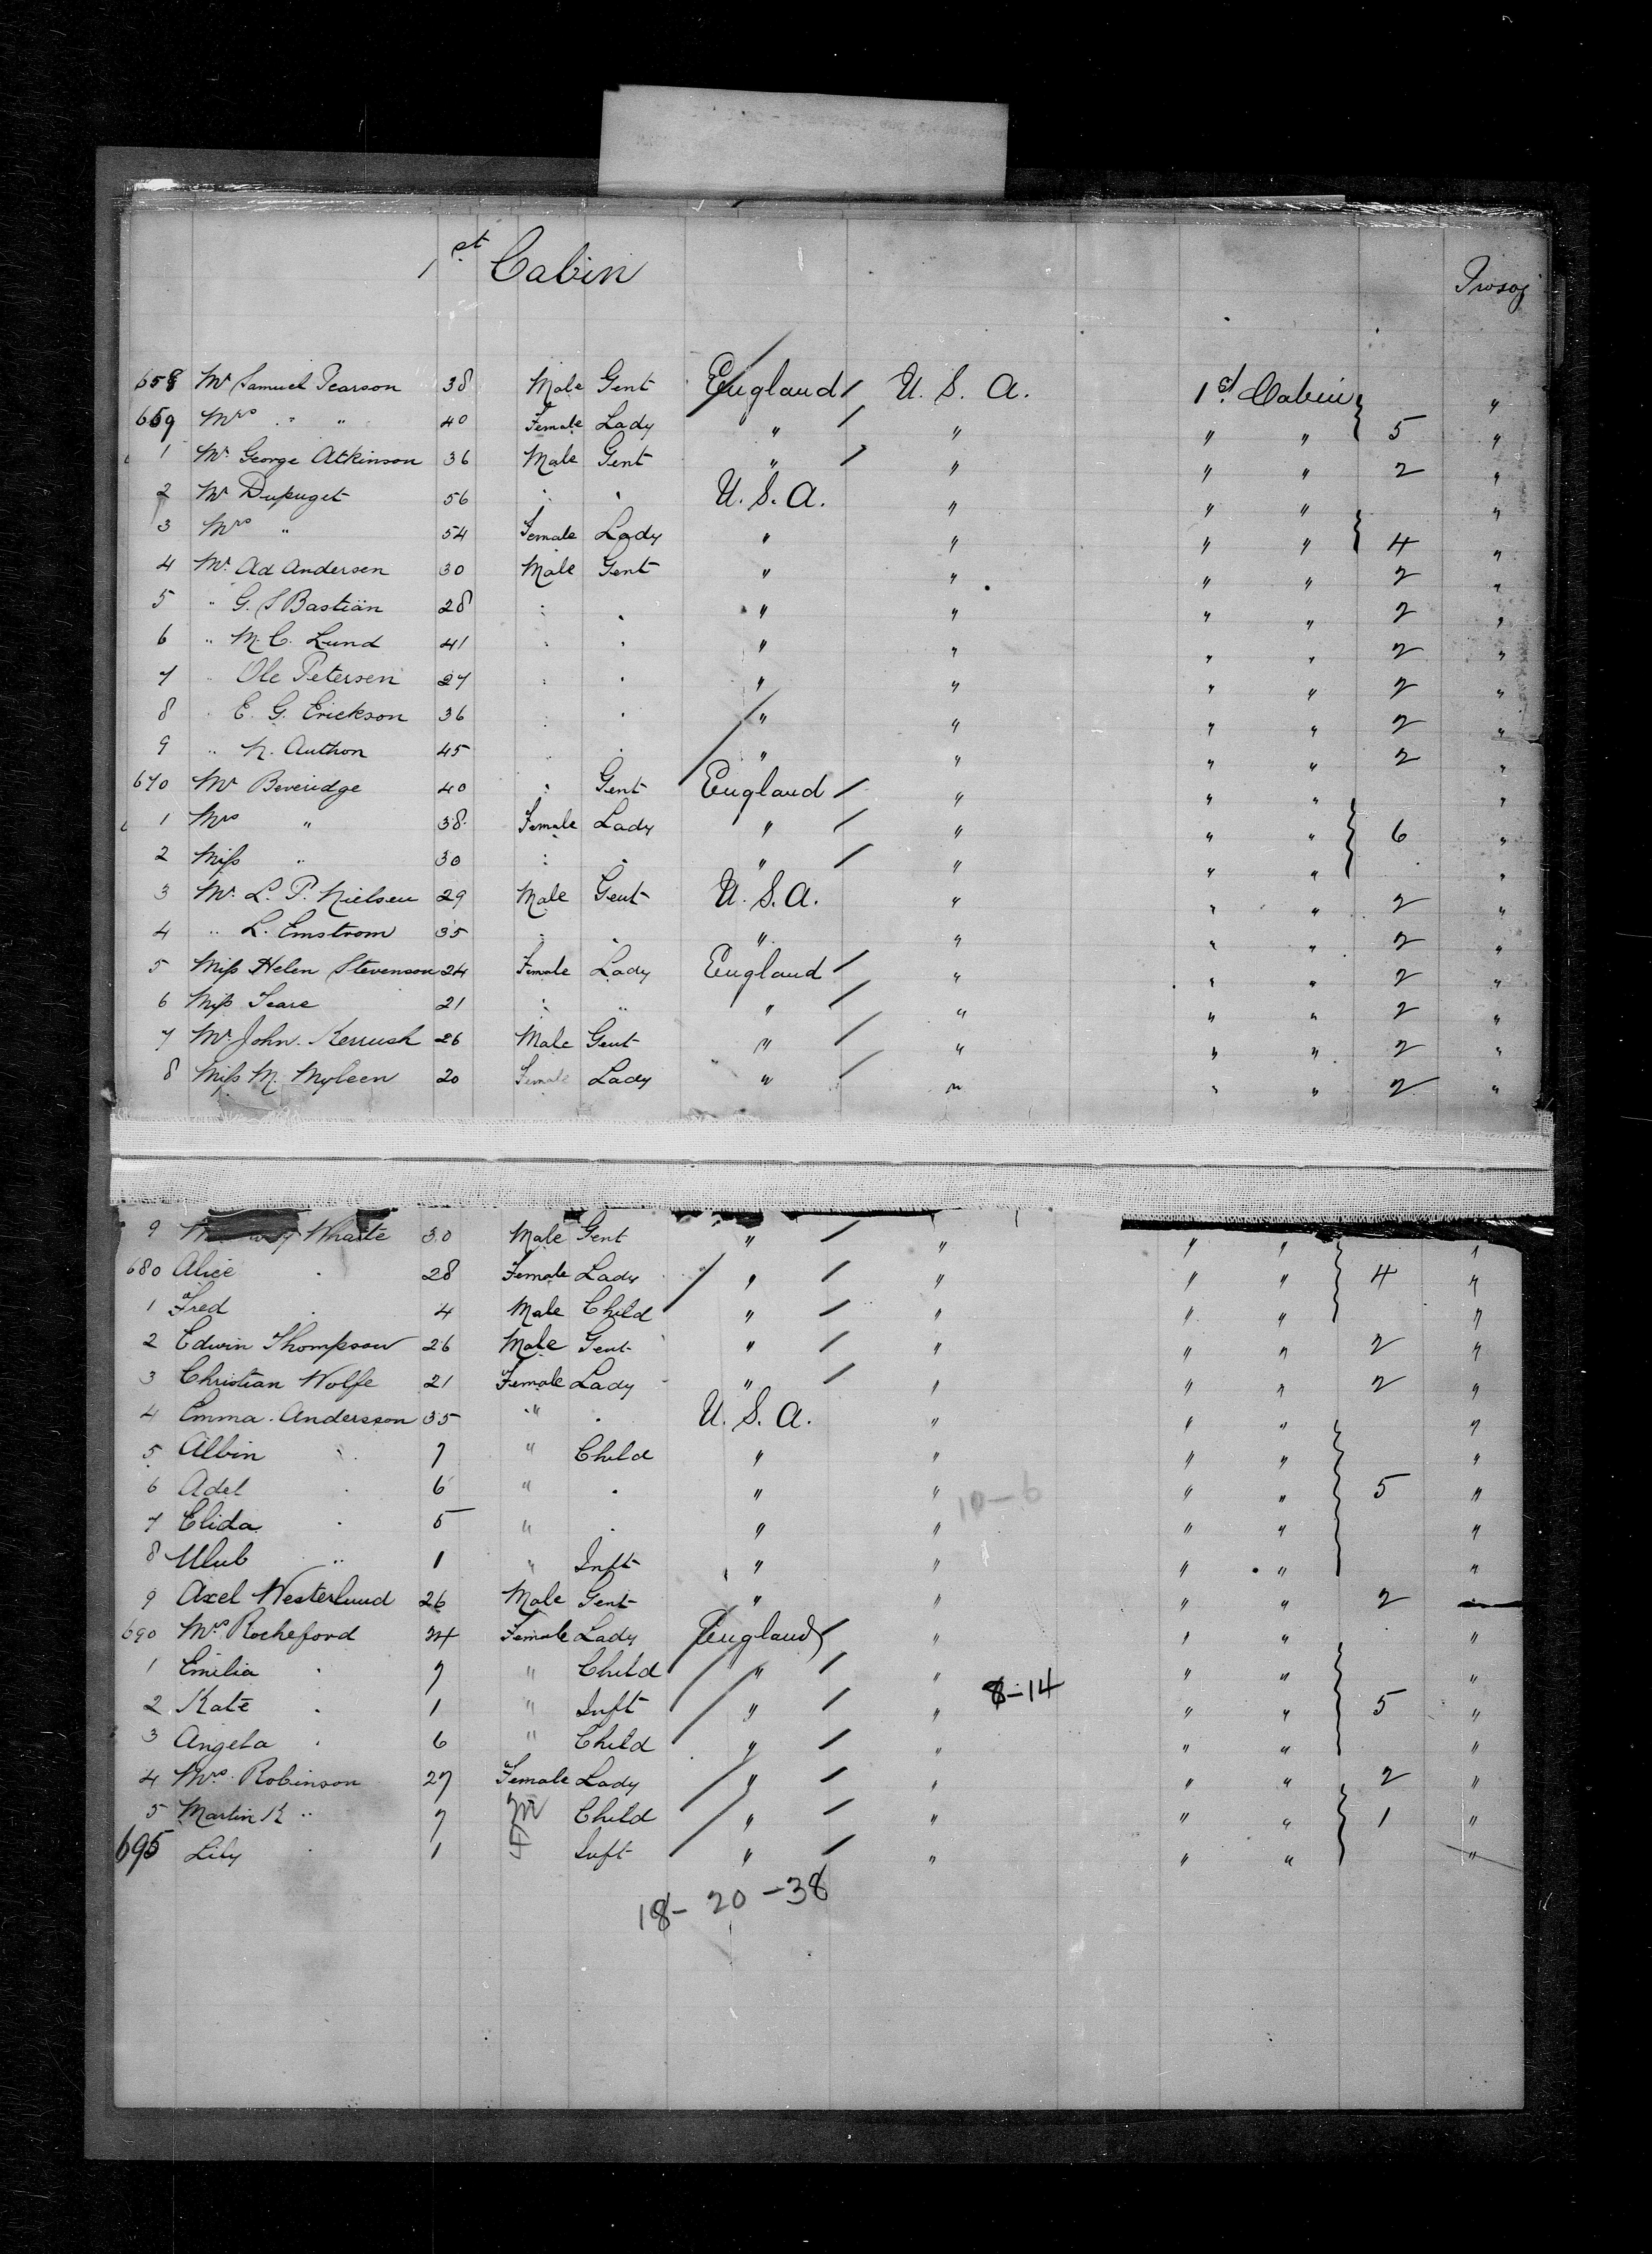 1st Cabin
658 Mr Samuel Pearson 38 Male Gent England U. S. A. 1st Cabin "
659 Mrs " " 40 Female Lady " " " " 5 "
1 Mr George Atkinson 36 Male Gent " " " " 2 "
2 Mr Dupuget 56 " " U. S. A. " " " "
3 Mrs " 54 Female Lady " " " " 4 "
4 Mr Ad Andersen 30 Male Gent " " " " 2 "
5 " G. S Bastiän 28 " " " " " " 2 "
6 " M. C. Lund 41 " " " " " " 2 "
7 " Ole Petersen 27 " " " " " " 2 "
8 " E. G. Erickson 36 " " " " " " 2 "
9 " N. Authon 45 " " " " " " 2 "
670 Mr Beveridge 40 " Gent England " " " "
1 Mrs " 38 Female Lady " " " " 6 "
2 Miss " 30 " " " " " " "
3 Mr. L. P. Nielsen 29 Male Gent U. S. A. " " " 2 "
4 " L. Emstrom 35 " " " " " " 2 "
5 Miss Helen Stevenson 24 Female Lady England " " " 2 "
6 Miss Teare 21 " " " " " " 2 "
7 Mr John Kerrush 26 Male Gent " " " " 2 "
8 Miss M. Myleen 20 Female Lady " " " " 2 "
9 Whaite 30 Male Gent " " " " "
680 Alice " 28 Female Lady " " " " 4 "
1 Fred " 4 Male Child " " " " "
2 Edwin Thompson 26 Male Gent " " " " 2 "
3 Christian Wolfe 21 Female Lady " " " " 2 "
4 Emma Andersson 35 " " U. S. A. " " " "
5 Albin " 7 " Child " " " " "
6 Adel " 6 " " " " 10-6 " " 5 "
7 Elida " 5 " " " " " " "
8 Ulub " 1 " Inft " " " " "
9 Axel Westerlund 26 Male Gent " " " " 2
690 Mrs Rocheford 34 Female Lady England " " " "
1 Emilia " 7 " Child " " " " "
2 Kate " 1 " Inft " " 8-14 " " 5 "
3 Angela " 6 " Child " " " " "
4 Mrs Robinson 27 Female Lady " " " " 2 "
5 Martin K " 7 M Child " " " " 1 "
695 Lily " 1 F Inft " " " " "
18- 20 -38